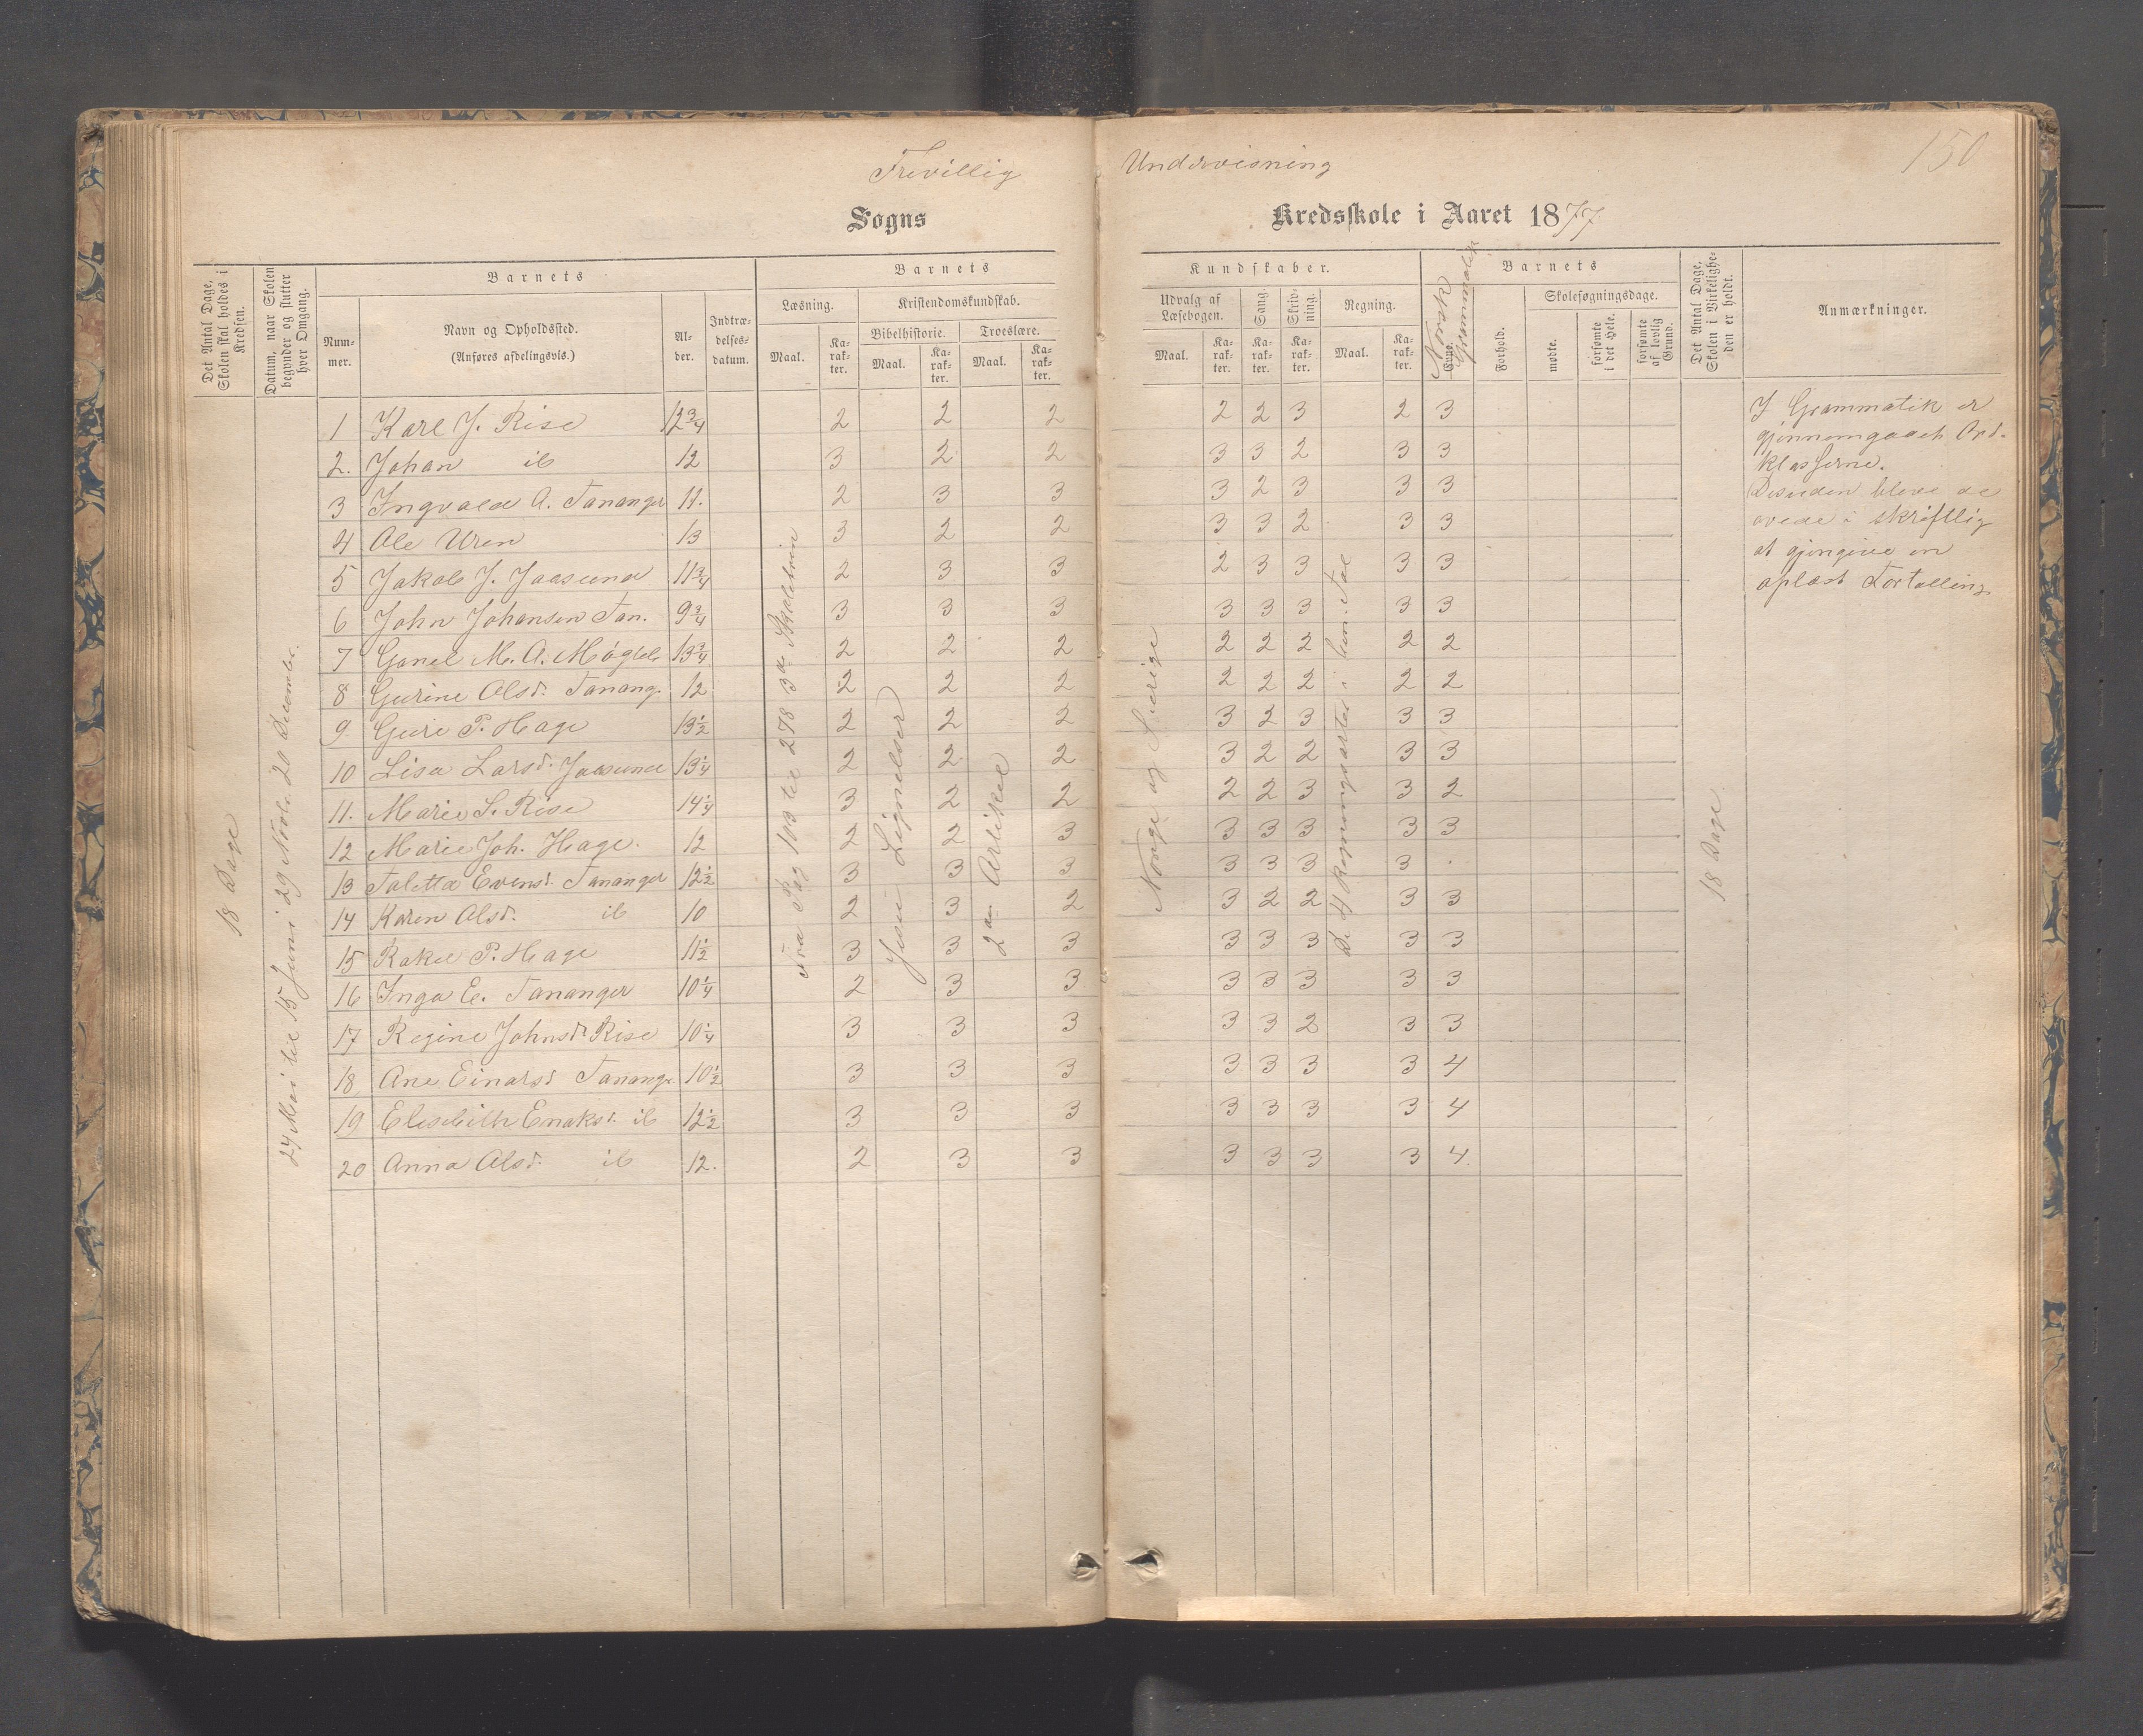 150
Frivillig Undervisning
Sogns Kredsskole i Aaret 1877
Det Antal Dage, Skolen skal holdes i Kredsen.
Datum, naar Skolen begynder og slutter hver Omgang.
Barnets
Nummer.
Navn og Opholdssted.
(Anføres afdelingsvis.)
Alder.
Indtrædelsesdatum.
Barnets
Læsning.
Maal.
Karakter.
Kristendomskundskab.
Bibelhistorie.
Maal.
Karakter.
Troeslære.
Maal.
Karakter.
Kundskaber.
Udvalg af Læsebogen.
Maal.
Karakter.
Sang.
Karakter.
Skrivning.
Karakter.
Regning.
Maal.
Karakter.
Norsk Grammatik
Barnets
Evne.
Forhold.
Skolesøgningsdage.
mødte.
forsømte i det Hele.
forsømte af lovlig Grund.
Det Antal Dage, Skolen i Virkeligheden er holdt.
Anmærkninger.
18 Dage
24 Mai til 15 Juni 29 Novb. 20 Decembr.
Fra Pag 103 til 278 3die Skoletrin
Jesu Lignelser
2den Artikel
Norge og Sverige
De 4 Regningsarter i ben. Tal
18 Dage
1 Karl J. Rise 12 3/4 2 2 2 2 2 3 2 3
2. Johan ib 12 3 2 2 3 3 2 3 3
3 Ingvald A. Tananger 11. 2 3 3 3 2 3 3 3
4 Ole Uren 13 3 2 2 3 3 2 3 3
5 Jakob J. Jaasund 11 3/4 2 3 3 2 3 3 3 3
6 John Johansen Tan. 9 3/4 3 3 3 3 3 3 3 3
7 Gonel M. A. Møgleb 13 3/4 2 2 2 2 2 2 2 2
8 Gurine Olsd. Tanang. 12 2 2 2 2 2 2 2 2
9 Guri P. Hage 13 1/2 2 2 2 3 2 3 3 3
10 Lisa Larsd. Jaasund 13 1/4 2 2 2 3 2 2 3 3
11. Marie S. Rise 14 1/4 3 2 2 2 2 3 3 2
12 Marie Joh. Hage. 12 2 2 3 3 3 3 3 3
13 Toletta Evensd. Tananger 12 1/2 3 3 3 3 3 3 3 .
14 Karen Olsd. ib 10 2 3 2 3 2 2 3 3
15 Rakel P. Hage 11 1/2 3 3 3 3 3 3 3 3
16 Inga E. Tananger 10 1/4 2 3 3 3 3 3 3 3
17 Regine Johnsd. Rise 10 1/4 3 3 3 3 3 2 3 3
18 Ane Einarsd Tanang. 10 1/2 3 3 3 3 3 3 3 4
19 Elisebith Enoksd. ib 12 1/2 3 3 3 3 3 3 3 4
20 Anna Olsd. ib 12. 2 3 3 3 3 3 3 4
I Grammatik er
gjennemgaaet Ord-
klasserne.
Desuden bleve de
øvede i skriftlig
at gjengive en
oplæst Fortælling